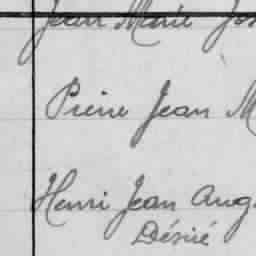 Jean Marie Jos
Pierre Jean M
Henri Jean Aug
Désiré